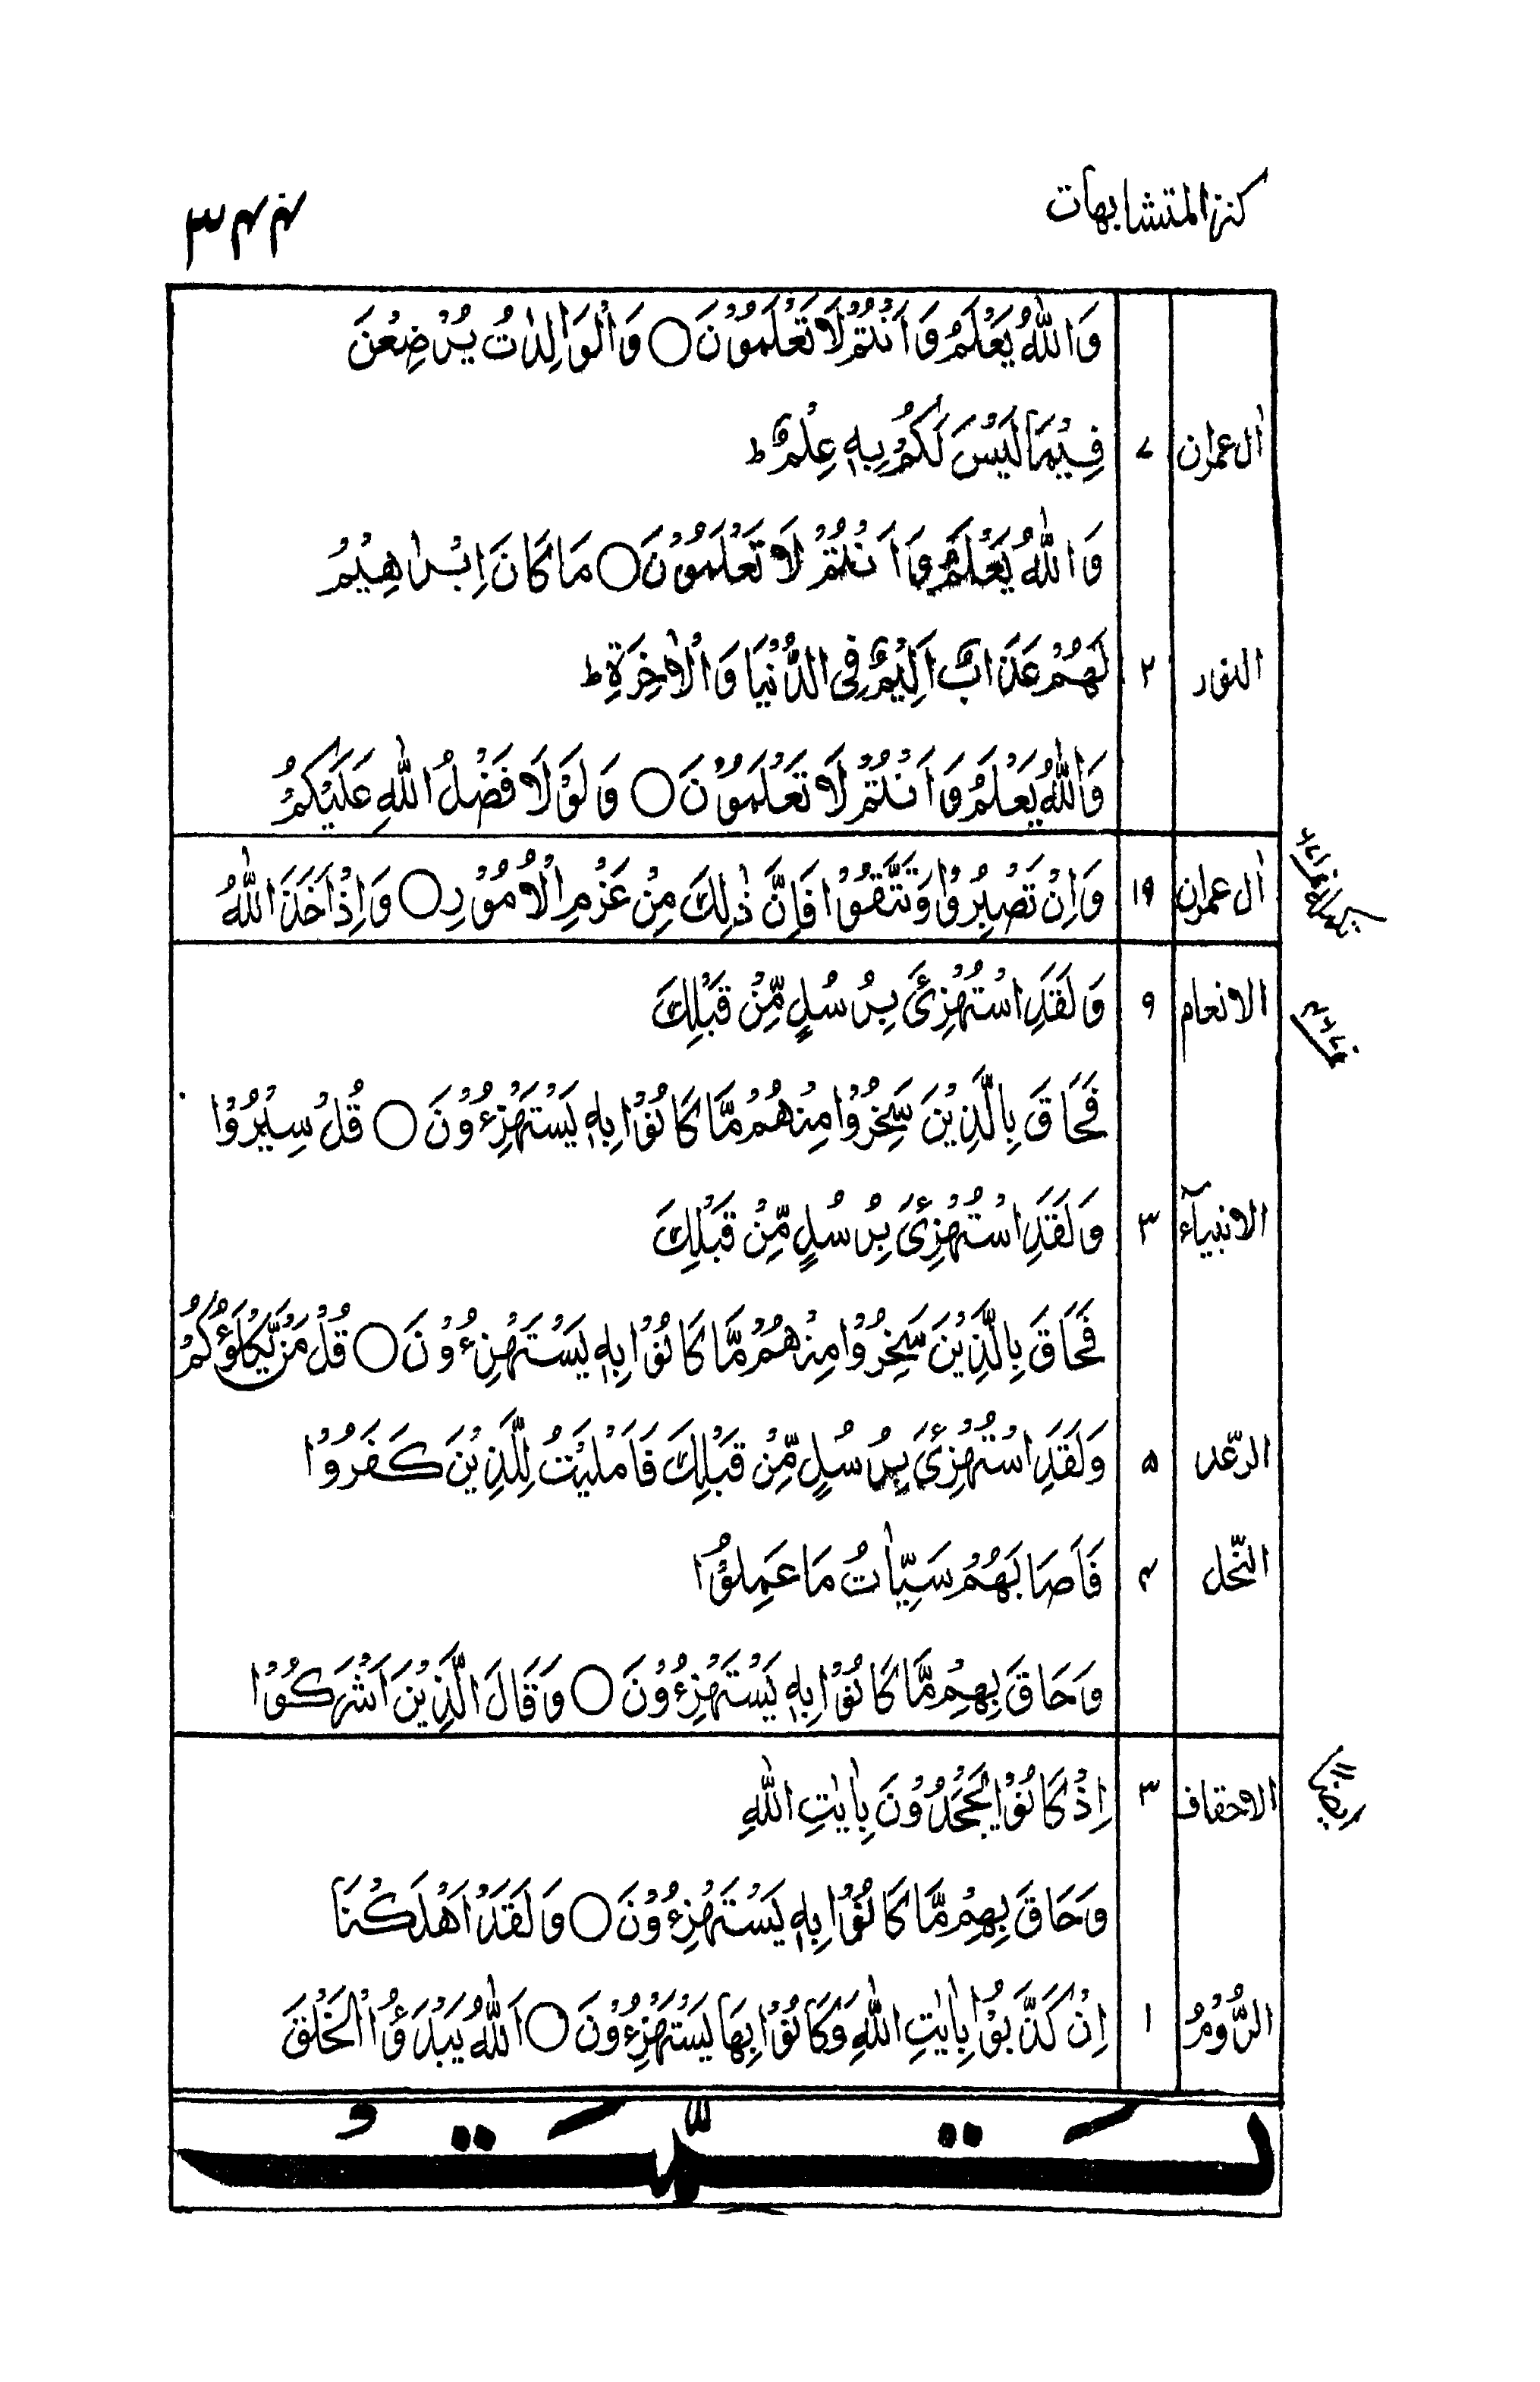 كنز المتشابهات ۳۴۴
وَاللّٰهُ يَعْلَمُ وَاَنْتُمْ لَا تَعْلَمُوْنَ ○ وَالْوَالِدٰتُ يُرْضِعْنَ
اٰل عمران ۷ فِيْمَا لَيْسَ لَكُمْ بِهٖ عِلْمٌ ط
وَاللّٰهُ يَعْلَمُ وَاَنْتُمْ لَا تَعْلَمُوْنَ ○ مَا كَانَ اِبْرٰهِيْمُ
النور ۲ لَهُمْ عَذَابٌ اَلِيْمٌ فِى الدُّنْيَا وَالْاٰخِرَةِ ط
وَاللّٰهُ يَعْلَمُ وَاَنْتُمْ لَا تَعْلَمُوْنَ ○ وَلَوْلَا فَضْلُ اللّٰهِ عَلَيْكُمْ
اٰل عمران ۱۹ وَاِنْ تَصْبِرُوْا وَتَتَّقُوْا فَاِنَّ ذٰلِكَ مِنْ عَزْمِ الْاُمُوْرِ ○ وَاِذْ اَخَذَ اللّٰهُ
الانعام ۹ وَلَقَدِ اسْتُهْزِئَ بِرُسُلٍ مِّنْ قَبْلِكَ
فَحَاقَ بِالَّذِيْنَ سَخِرُوْا مِنْهُمْ مَّا كَانُوْا بِهٖ يَسْتَهْزِءُوْنَ ○ قُلْ سِيْرُوْا
الانبيآء ۳ وَلَقَدِ اسْتُهْزِئَ بِرُسُلٍ مِّنْ قَبْلِكَ
فَحَاقَ بِالَّذِيْنَ سَخِرُوْا مِنْهُمْ مَّا كَانُوْا بِهٖ يَسْتَهْزِءُوْنَ ○ قُلْ مَنْ يَّكْلَؤُكُمْ
الرّعد ۵ وَلَقَدِ اسْتُهْزِئَ بِرُسُلٍ مِّنْ قَبْلِكَ فَاَمْلَيْتُ لِلَّذِيْنَ كَفَرُوْا
النّحل ۴ فَاَصَابَهُمْ سَيِّاٰتُ مَا عَمِلُوْا
وَحَاقَ بِهِمْ مَّا كَانُوْا بِهٖ يَسْتَهْزِءُوْنَ ○ وَقَالَ الَّذِيْنَ اَشْرَكُوْا
الاحقاف ۳ اِذْ كَانُوْا يَجْحَدُوْنَ بِاٰيٰتِ اللّٰهِ
وَحَاقَ بِهِمْ مَّا كَانُوْا بِهٖ يَسْتَهْزِءُوْنَ ○ وَلَقَدْ اَهْلَكْنَا
الرُّوْمُ ۱ اِنْ كَذَّبُوْا بِاٰيٰتِ اللّٰهِ وَكَانُوْا بِهَا يَسْتَهْزِءُوْنَ ○ اَللّٰهُ يَبْدَؤُا الْخَلْقَ
تَمَّتْ